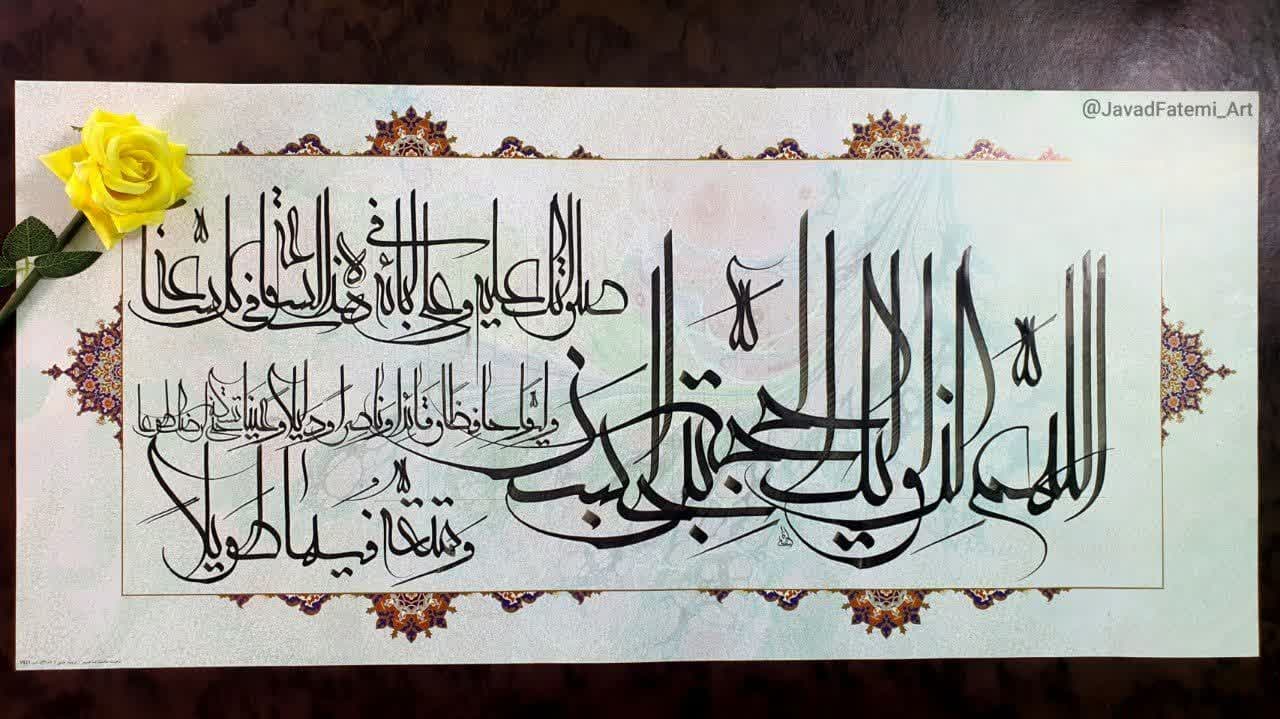 @JavadFatemi_Art
اللّهم كن لولیک الحجة بن الحسن
صلواتک علیه و علی ابائه فی هذه الساعة و فی کل ساعة
ولیا و حافظا و قائدا و ناصرا و دلیلا و عینا حتی تسکنه ارضک طوعا
و تمتعه فیها طویلا